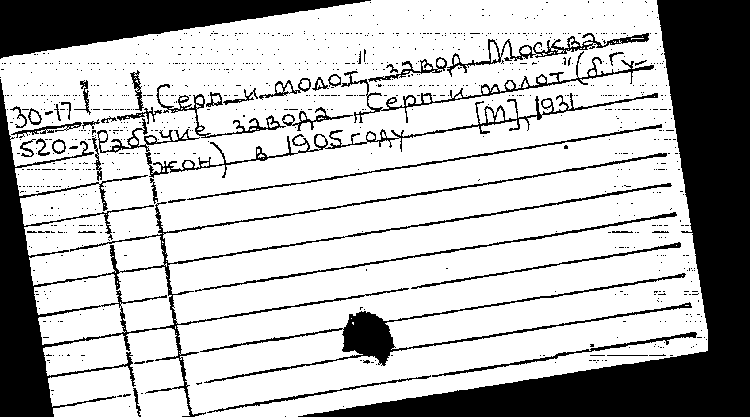 „Серп и молот" завод Москва
30-17
520-2 Рабочие завода „Серп и молот" (б. Гу-
жон) в 1905 году [М], 1931